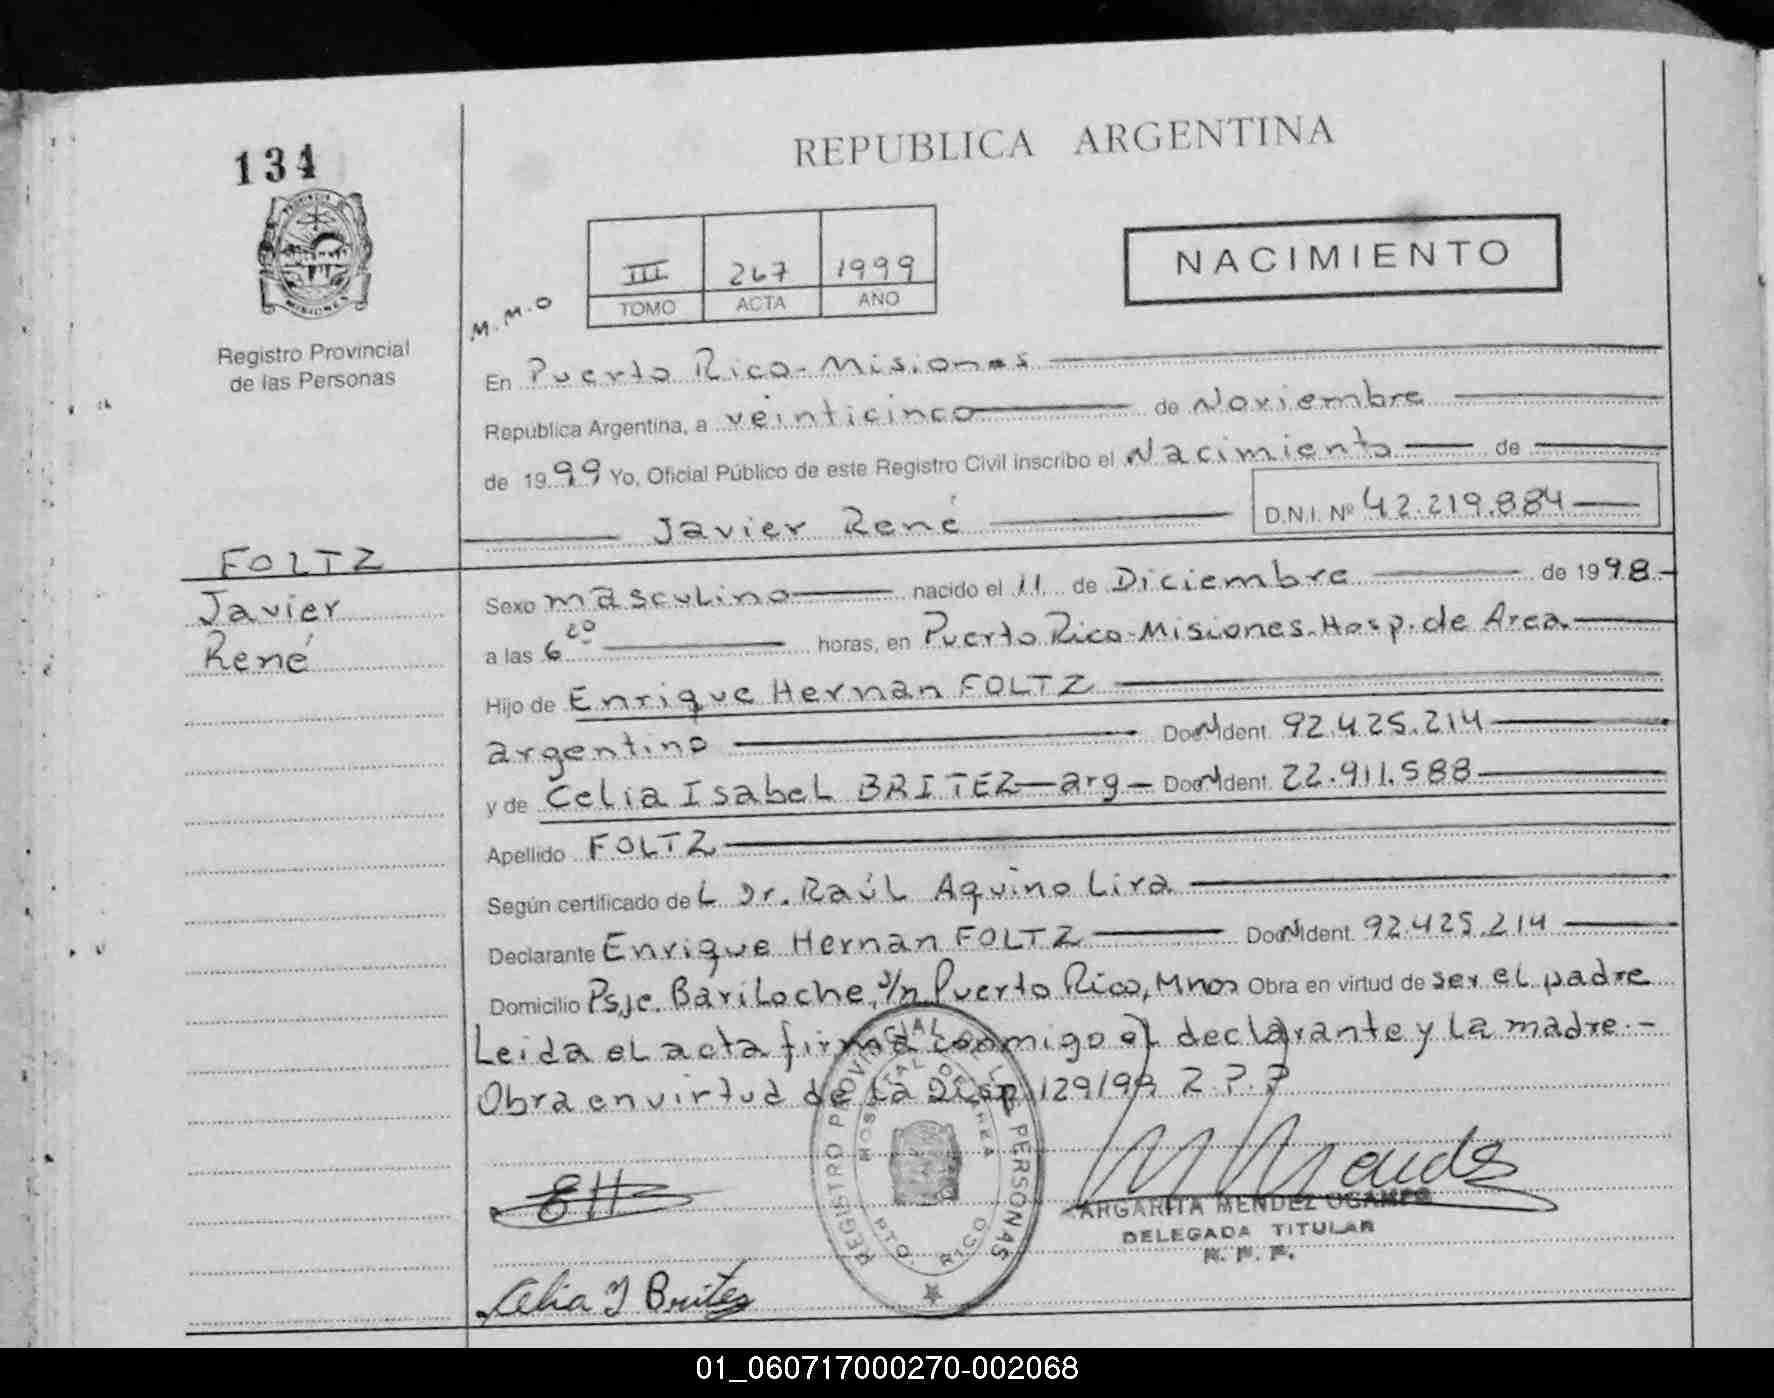 134
REPUBLICA ARGENTINA
III 267 1999
TOMO ACTA AÑO
NACIMIENTO
M.M.O
Registro Provincial
de las Personas
En Puerto Rico-Misiones
República Argentina, a veinticinco de Noviembre
de 1999 Yo, Oficial Público de este Registro Civil inscribo el Nacimiento de
Javier René D.N.I. Nº 42.219.884
FOLTZ
Javier
René
Sexo masculino nacido el 11 de Diciembre de 1998
a las 6 20 horas, en Puerto Rico-Misiones-Hosp. de Area
Hijo de Enrique Hernan FOLTZ
argentino Ident. 92.425.214
y de Celia Isabel BRITEZ-arg- Ident. 22.911.588
Apellido FOLTZ
Según certificado del Dr. Raúl Aquino Lira
Declarante Enrique Hernan FOLTZ Ident. 92.425.214
Domicilio Psje. Bariloche, s/n Puerto Rico, Mnos Obra en virtud de ser el padre
Leida el acta firma conmigo el declarante y la madre.-
Obra en virtud de la Disp. 129/99 R.P.P
REGISTRO PROVINCIAL DE LAS PERSONAS
HOSPITAL DE AREA
PTO. RICO
ARGARITA MENDEZ OCAMPO
DELEGADA TITULAR
R. P. P.
Celia I Britez
01_060717000270-002068